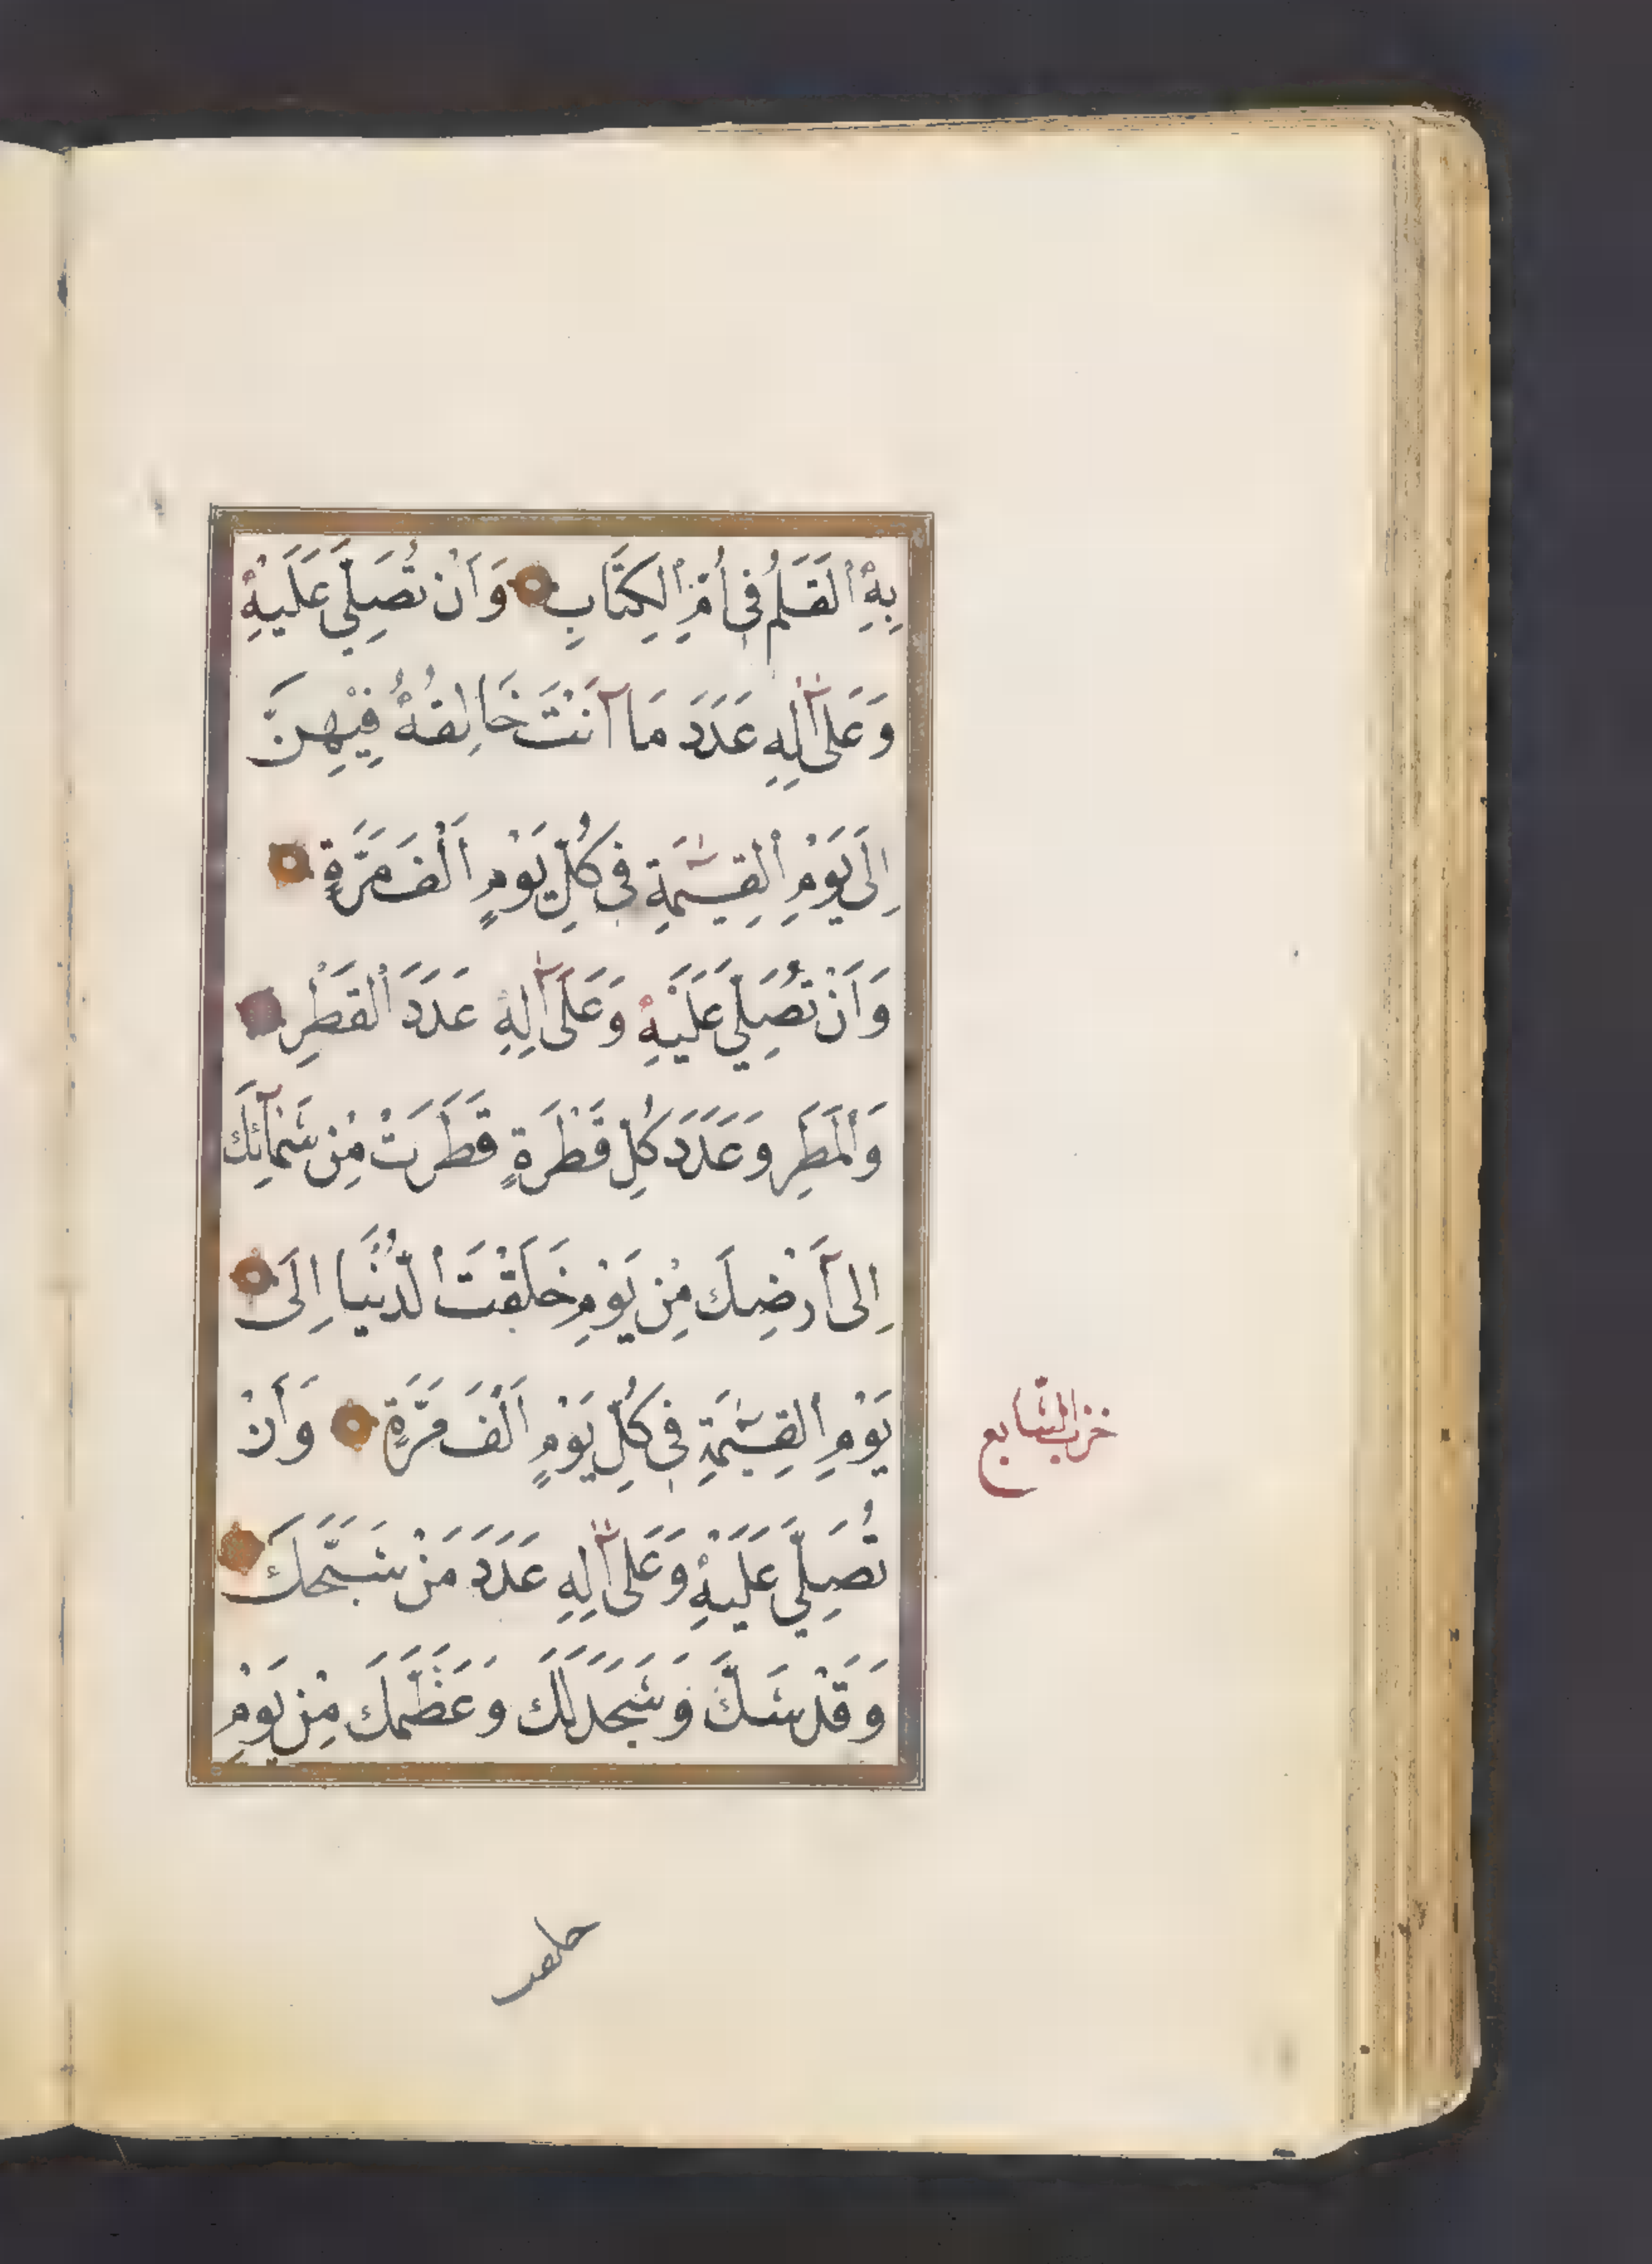 بِهِ ٱلْقَلَمُ فِى أُمِّ ٱلْكِتَابِ وَاَنْ تُصَلِّيَ عَلَيْهِ
وَعَلٰى اٰلِهِ عَدَدَ مَا اَنْتَ خَالِقُهُ فِيْهِنَّ
اِلَى يَوْمِ ٱلْقِيٰمَةِ فِى كُلِّ يَوْمٍ اَلْفَ مَرَّةٍ
وَاَنْ تُصَلِّيَ عَلَيْهِ وَعَلَى اٰلِهِ عَدَدَ ٱلْقَطْرِ
وَٱلْمَطَرِ وَعَدَدَ كُلِّ قَطْرَةٍ قَطَرَتْ مِنْ سَمَآئِكَ
اِلىٓ اَرْضِكَ مِنْ يَوْمِ خَلَقْتَ ٱلدُّنْيَا اِلَى
يَوْمِ ٱلْقِيٰمَةِ فِى كُلِّ يَوْمٍ اَلْفَ مَرَّةٍ وَأَنْ
حزب السابع
تُصَلِّيَ عَلَيْهِ وَعَلٰى اٰلِهِ عَدَدَ مَنْ سَبَّحَكَ
وَقَدَّسَكَ وَسَجَدَ لَكَ وَعَظَّمَكَ مِنْ يَوْمِ
خلقت